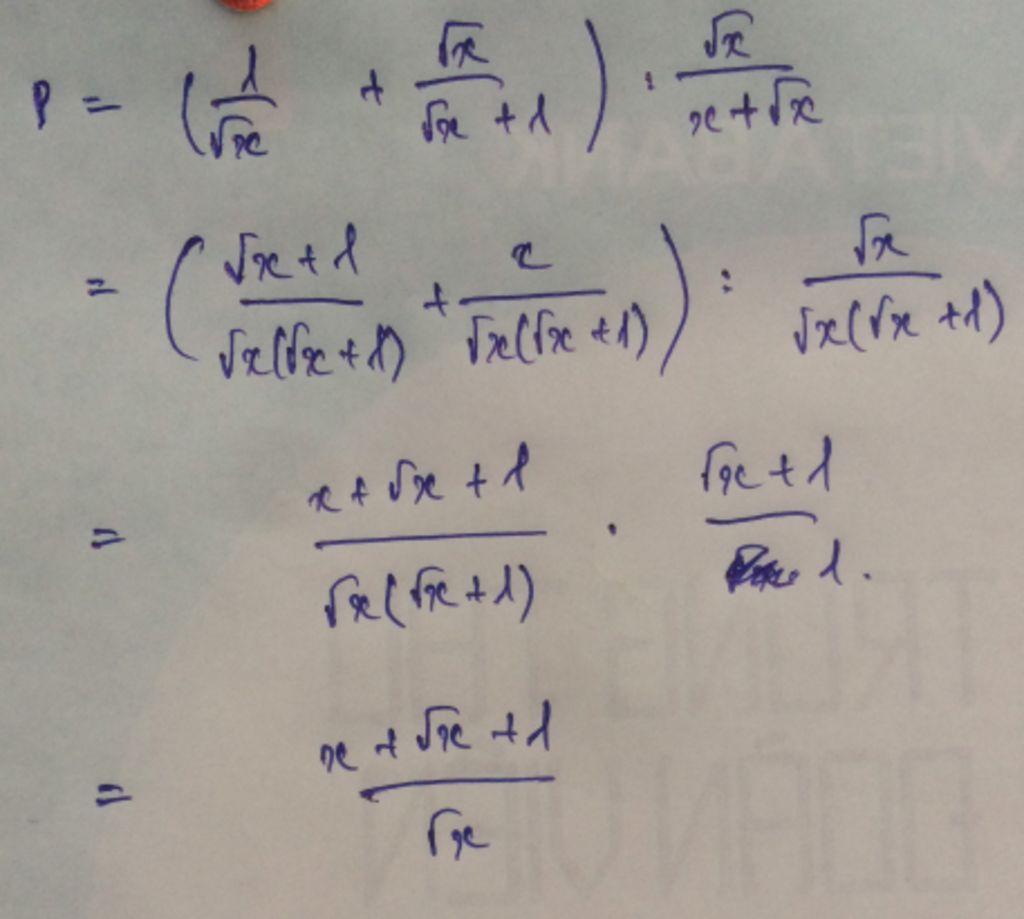 P = (1/√x + √x/(√x + 1)) : √x/(x + √x)
= ((√x + 1)/(√x(√x + 1)) + x/(√x(√x + 1))) : √x/(√x(√x + 1))
= (x + √x + 1)/(√x(√x + 1)) . (√x + 1)/1.
= (x + √x + 1)/√x